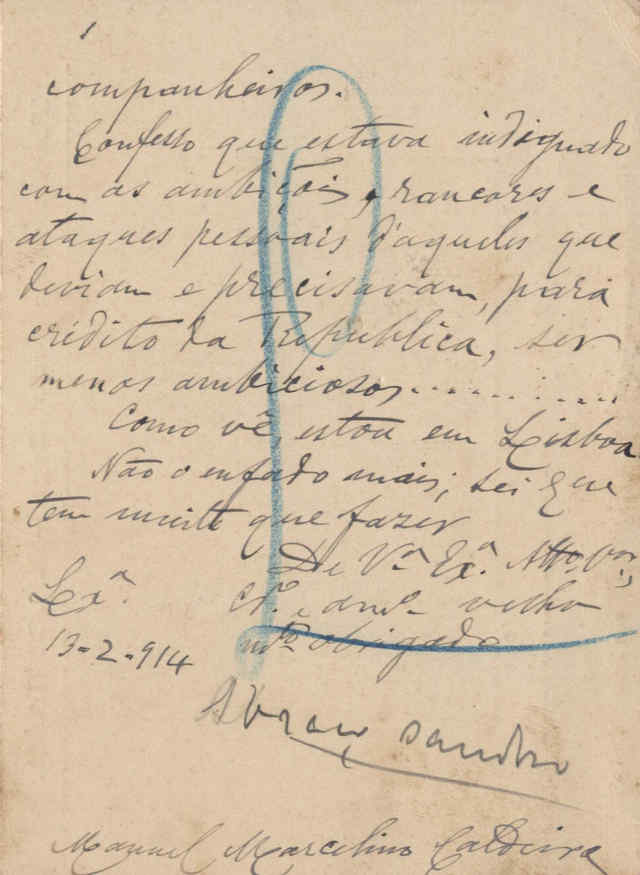 companheiros.
Confesso que estava indignado
com as ambições, rancores e
ataques pessoais d'aqueles que
deviam e precisavam, para
crédito da Republica, ser
menos ambiciosos..........
Como vê, estou em Lisboa
Não o enfado mais; sei que
tem muito que fazer
De Vª Exª. Attº Vor,
Crº. e amº velho
mtº obrigado
Lxª.
13-2-914
Manuel Marcelino Caldeira